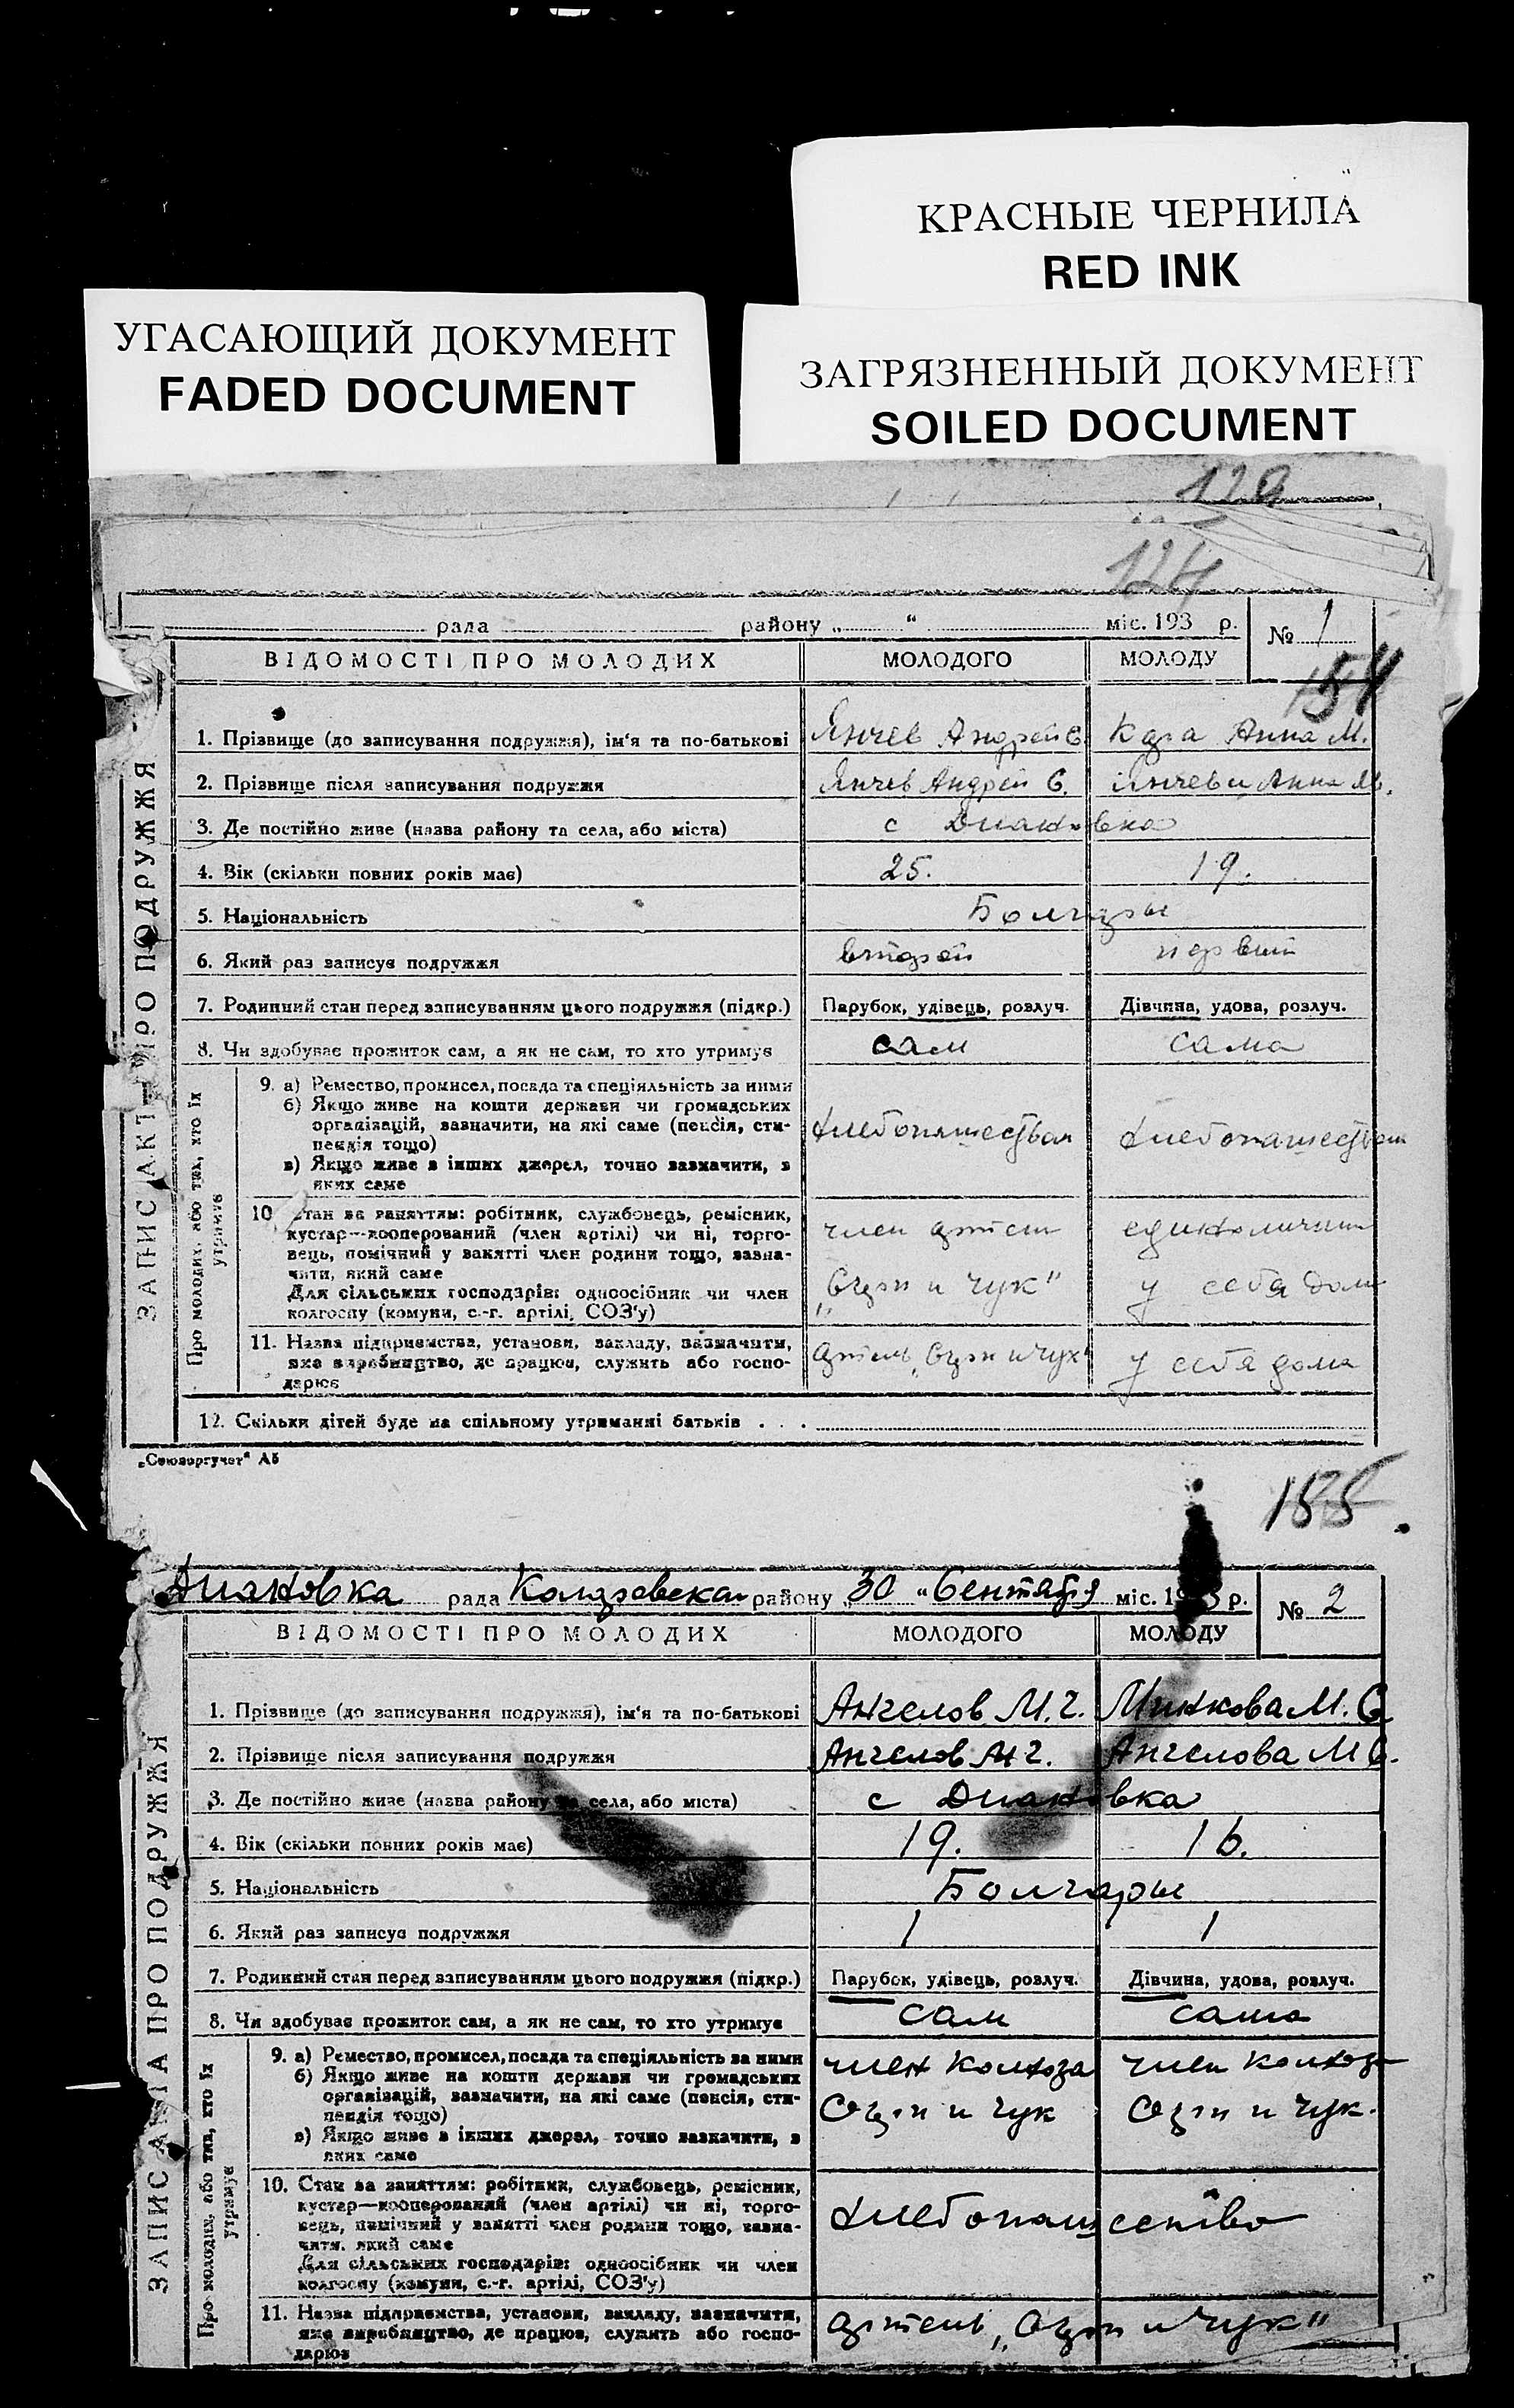 КРАСНЫЕ ЧЕРНИЛА
RED INK
УГАСАЮЩИЙ ДОКУМЕНТ
FADED DOCUMENT
ЗАГРЯЗНЕННЫЙ ДОКУМЕНТ
SOILED DOCUMENT
129
124
рада района „ “ міс. 193 р. № 1
154
ЗАПИС АКТА ПРО ПОДРУЖЖЯ
ВІДОМОСТІ ПРО МОЛОДИХ МОЛОДОГО МОЛОДУ
1. Прізвище (до записування подружжя), ім'я та по-батькові Янчев Андрей С. Кара Анна М.
2. Прізвище після записування подружжя Янчев Андрей С. Анна
3. Де постійно живе (назва району та села, або міста) с Диановка
4. Вік (скільки повних років має) 25. 19.
5. Національність Болгары
6. Який раз записує подружжя второй первий
7. Родинний стан перед записуванням цього подружжя (підкр.) Парубок, удівець, розлуч. Дівчина, удова, розлуч.
8. Чи здобуває прожиток сам, а як не сам, то хто утримує сам сама
Про молодих, або тих, хто їх утримує
9. а) Ремество, промисел, посада та спеціяльність за ними
б) Якщо живе на кошти держави чи громадських
організацій, зазначити, на які саме (пенсія, сти-
пендія тощо)
в) Якщо живе з інших джерел, точно зазначити, з
яких саме
10. Стан за заняттям: робітник, службовець, ремісник,
кустар—кооперований (член артілі) чи ні, торго-
вець, помічний у занятті член родини тощо, зазна-
чити, який саме
Для сільських господарів: одноосібник чи член
колгоспу (комуни, с.-г. артілі, СОЗ'у)
член у себя дома
11. Назва підприємства, установи, закладу, зазначити,
яке виробництво, де працює, служить або госпо-
дарює
у себя дома
12. Скільки дітей буде на спільному утриманні батьків . . .
„Союзоргучет“ А5
155
Диановка рада району „30 “ Сентября міс. 19 3 р. № 2
ЗАПИС АКТА ПРО ПОДРУЖЖЯ
ВІДОМОСТІ ПРО МОЛОДИХ МОЛОДОГО МОЛОДУ
1. Прізвище (до записування подружжя), ім'я та по-батькові Ангелов М. Г. Минкова М. С
2. Прізвище після записування подружжя Ангелов Г. Ангелова М С.
3. Де постійно живе (назва району та села, або міста) с Диановка
4. Вік (скільки повних років має) 19. 16.
5. Національність Болгары
6. Який раз записує подружжя 1 1
7. Родинний стан перед записуванням цього подружжя (підкр.) Парубок, удівець, розлуч. Дівчина, удова, розлуч.
8. Чи здобуває прожиток сам, а як не сам, то хто утримує сам сама
Про молодих, або тих, хто їх утримує
9. а) Ремество, промисел, посада та спеціяльність за ними член колхоза член колхоза
б) Якщо живе на кошти держави чи громадських
організацій, зазначити, на які саме (пенсія, сти-
пендія тощо)
в) Якщо живе з інших джерел, точно зазначити, з
яких саме
10. Стан за заняттям: робітник, службовець, ремісник,
кустар—кооперований (член артілі) чи ні, торго-
вець, помічний у занятті член родини тощо, зазна-
чити, який саме
Для сільських господарів: одноосібник чи член
колгоспу (комуни, с.-г. артілі, СОЗ'у)
хлебопашество
11. Назва підприємства, установи, закладу, зазначити,
яке виробництво, де працює, служить або госпо-
дарює
артель